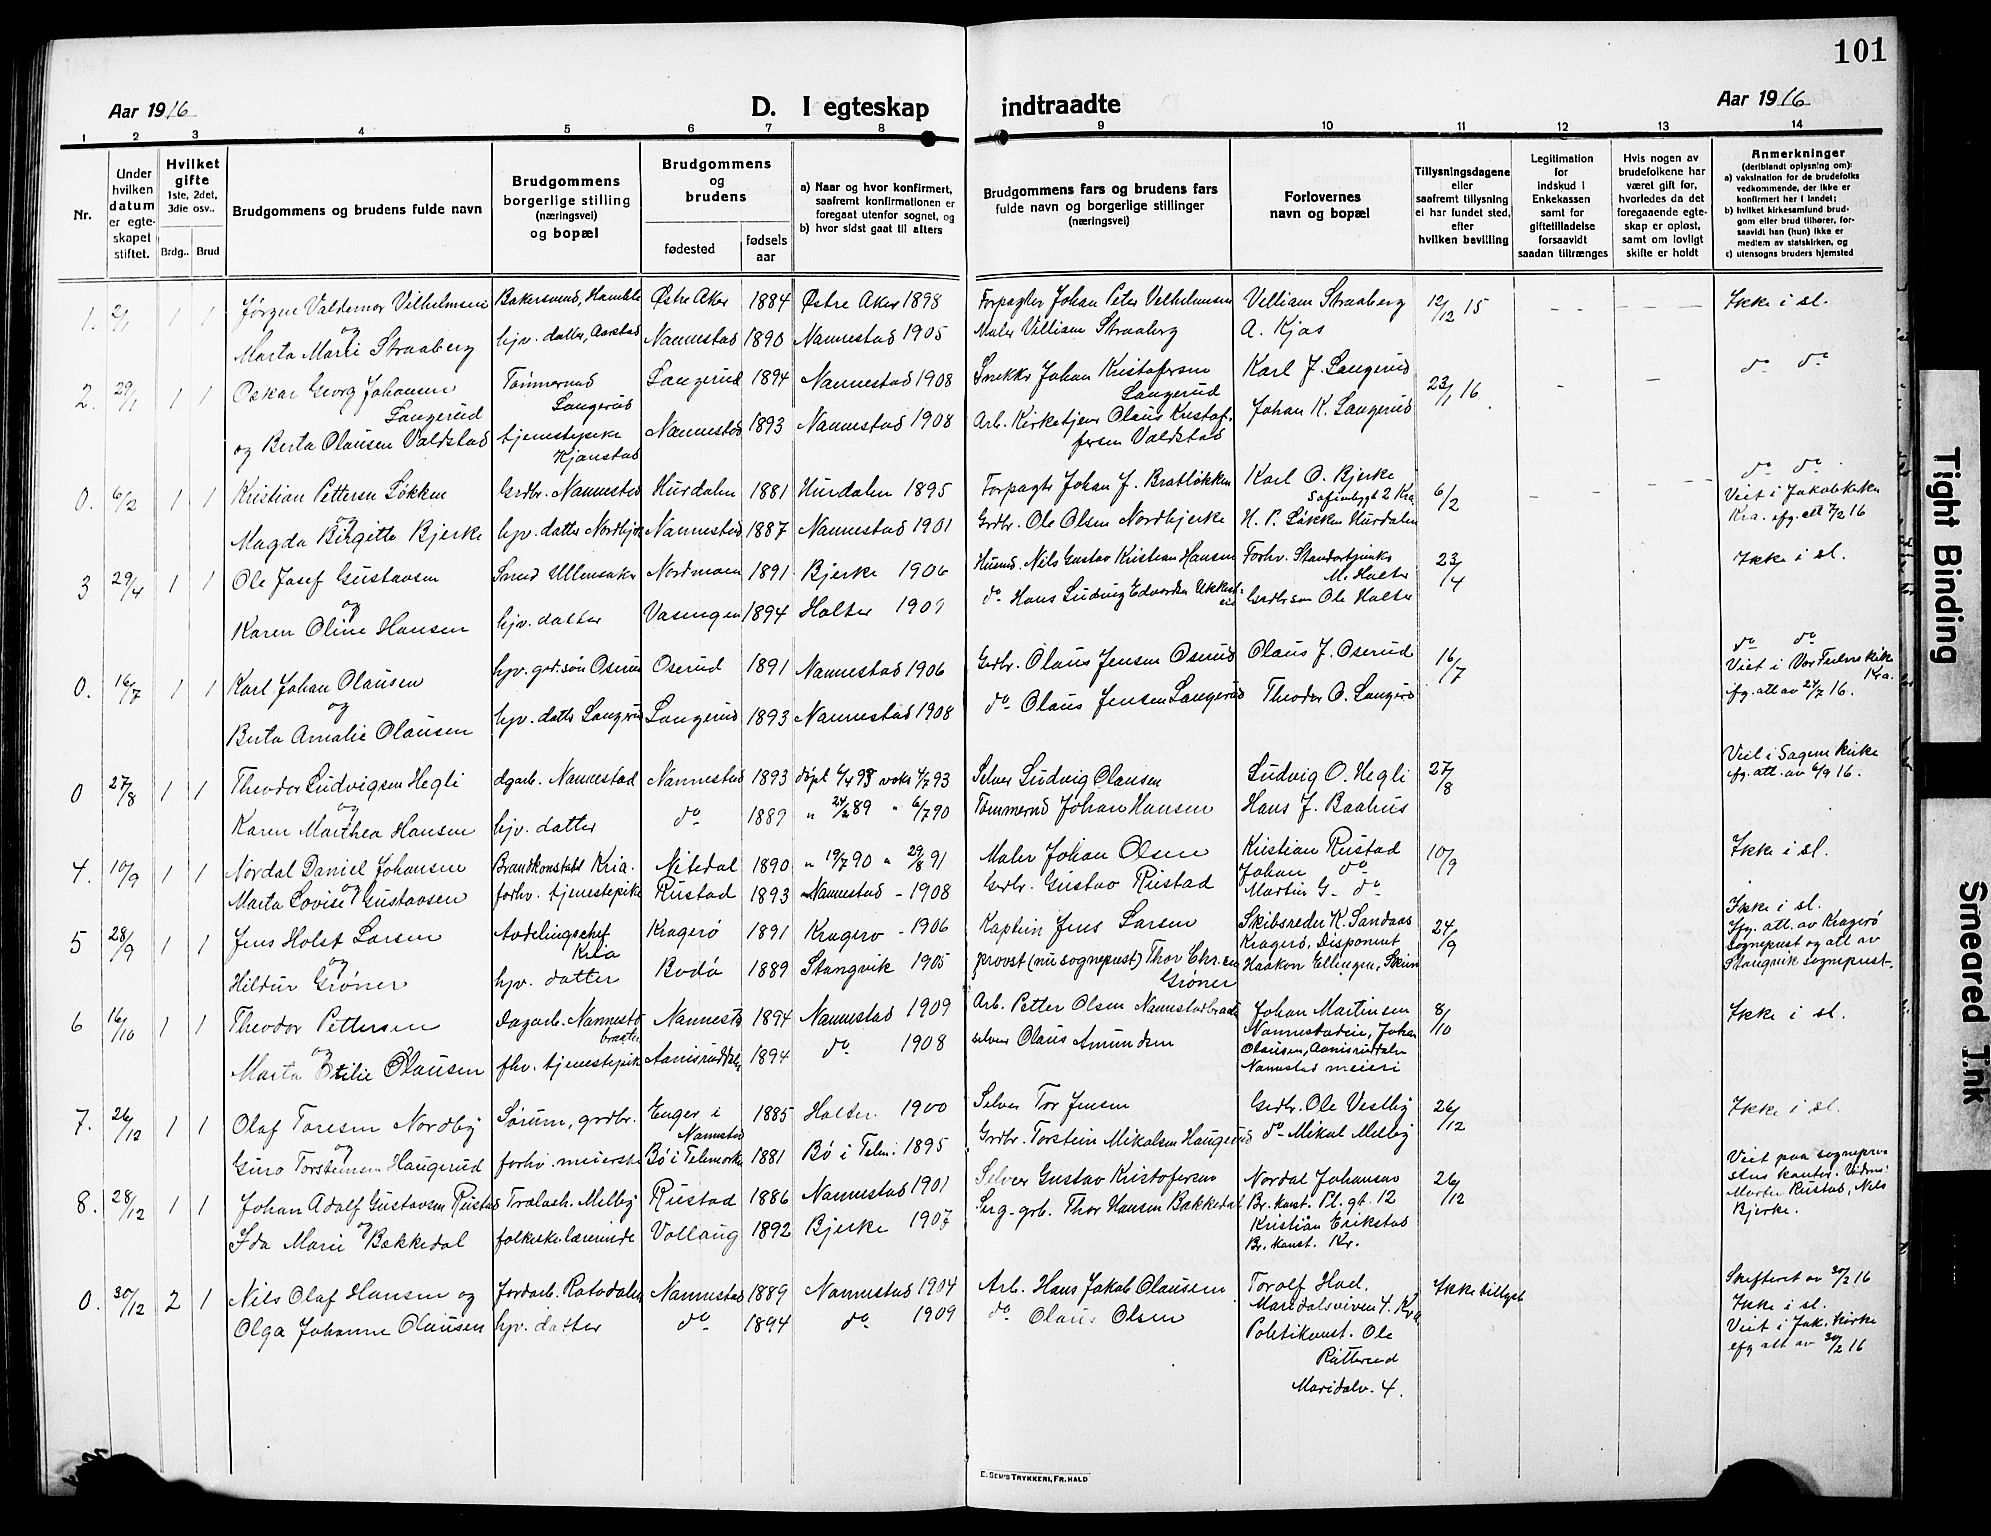 101
Aar 1916
D. I egteskap indtraadte
Aar 1916
1 2 3 4 5 6 7 8 9 10 11 12 13 14
Nr.
Under hvilken datum er egte-skapet stiftet.
Hvilket gifte 1ste, 2det, 3die osv..
Brdg.. Brud
Brudgommens og brudens fulde navn
Brudgommens borgerlige stilling (næringsvei) og bopæl
Brudgommens og brudens
fødested
fødsels aar
a) Naar og hvor konfirmert, saafremt konfirmationen er foregaat utenfor sognet, og
b) hvor sidst gaat til alters
Brudgommens fars og brudens fars fulde navn og borgerlige stillinger (næringsvei)
Forlovernes navn og bopæl
Tillysningsdagene eller saafremt tillysning ei har fundet sted, efter hvilken bevilling
Legitimation for indskud i Enkekassen samt for giftetilladelse forsaavidt saadan tiltrænges
Hvis nogen av brudefolkene har været gift før, hvorledes da det foregaaende egte-skap er opløst, samt om lovligt skifte er holdt
Anmerkninger (deriblandt oplysning om):
a) vaksination for de brudefolks vedkommende, der ikke er konfirmert her i landet;
b) hvilket kirkesamfund brud-gom eller brud tilhører, for-saavidt han (hun) ikke er medlem av statskirken, og
c) utensogns bruders hjemsted
1. 2/1 1 1 Jørgen Valdemar Vilhelmsen Østre Aker 1884 Østre Aker 1898 Forpagter Johan Peter Vilhelmsen Villiam Straaberg 12/12 15 - - - Ikke i sl.
og Marta Marie Straaberg hjv. datter, Nannestad 1890 Nannestad 1905 Maler Villiam Straaberg A. Kjos
2. 29/1 1 1 Oskar Georg Johansen Langerud Tømmermd Langerud Langerud 1894 Nannestad 1908 Snekker Johan Kristofersen Langerud Karl J. Langerud 23/1 16 - - do do
og Berta Olausen Valdstad tjenestepike Kjønstad Nannestad 1893 Nannestad 1908 Arb. Kirketjener Olaus Kristof-fersen Valdstad Johan K. Langerud
0. 6/2 1 1 Kristian Pettersen Løkken Grdbr. Nannestad Hurdalen 1881 Hurdalen 1895 Forpagter Johan J. Bratløkken Karl O. Bjerke Sofienbygt 2 Kra 6/2 - - - do do
og Magda Birgitte Bjerke hjv. datter Nordbjerke Nannestad 1887 Nannestad 1901 Grdbr. Ole Olsen Nordbjerke H. P. Løkken Hurdalen Viet i Jakobkirken Kra. efg. att 7/2 16
3 29/4 1 1 Ole Josef Gustavsen Smed Ullensaker Nordmoen 1891 Bjerke 1906 Husmd. Nils Gustav Kristian Hansen Forhv. M. Holter 23/4 Ikke i sl.
og Karen Oline Hansen hjv. datter Vasengen 1894 Holter 1909 do Hans Ludvig Edvardsen Grdbr.søn Ole Holter
0. 16/7 1 1 Karl Johan Olausen hjv. grd.søn Oserud Oserud 1891 Nannestad 1906 Grdbr. Olaus Jensen Oserud Olaus J. Oserud 16/7 do do
og Berta Amalie Olausen hjv. datter Langerud Langerud 1893 Nannestad 1908 do Olaus Jensen Langerud Theodor O. Langerud Viet i Vor Frelsers kirke Kra. efg. att av 24/7 16.
0 27/8 1 1 Theodor Ludvigsen Hegli dgarb. Nannestad Nannestad 1893 døpt 4/4 93 vaks 4/7 93 Selveier Ludvig Olausen Ludvig O. Hegli 27/8 Viet i Sagene kirke efg. att. av 6/9 16.
og Karen Marthea Hansen hjv. datter do 1889 " 24/2 89 " 6/7 90 Tømmermd Johan Hansen Hans J. Baahus
4. 10/9 1 1 Nordal Daniel Johansen Brandkonstabl Kria. Nitedal 1890 " 19/7 90 " 29/8 91 Maler Johan Olsen Kristian Rustad 10/9 Ikke i sl.
og Marta Lovise Gustavsen forhv. tjenestepike Rustad 1893 Nannestad - 1908 Grdbr. Gustav Rustad Johan do Martin G- do
5 28/9 1 1 Jens Holst Larsen Avdelingschef Kria Kragerø 1891 Kragerø - 1906 Kaptein Jens Larsen Skibsreder K. Sandaas Kragerø, Disponent 24/9 Ikke i sl. Efg. att. av Kragerø sogneprest og att av Stangvik sogneprest-
og Hildur Grøner hjv. datter Bodø 1889 Stangvik 1905 provst (nu sogneprest) Thor Chr.sen Grøner Haakon Ellingsen, Skien
6 16/10 1 1 Theodor Pettersen Dagarb. Nannestbraaten Nannestd 1894 Nannestad 1909 Arb. Petter Olsen Nannestadbraaten Johan Martinsen 8/10 Ikke i sl.
og Marta Otilie Olausen fhv. tjenestepike Aamisruddalen 1894 do 1908 selveier Olaus Amundsen Nannestadeie, Johan Olausen, Aamisruddalen Nannestad meieri
7. 26/12 1 1 Olaf Toresen Nordby Sørum, grdbr. Enger i Nannestad 1885 Holter. 1900 Selveier Tor Jensen Grdbr. Ole Vestby 26/12 Ikke i sl.
og Guro Torsteinsen Haugerud forhv. meierske Bø i Telemarken 1881 Bø i Telm. 1895 Grdbr. Torstein Mikalsen Haugerud do - Mikal Melby
8. 28/12 1 1 Johan Adolf Gustavsen Rustad Melby Rustad 1886 Nannestad 1901 Selveier Gustav Kristofersen Nordal Johansen Br. konst. Pl. gt. 12 26/12 Viet paa sognepre-stens kontor. Vidner: Martin Rustad, Nils Bjerke.
og Ida Marie Bakkedal folkeskolelærerinde Vollaug 1892 Bjerke 1907 Serg- grb. Thor Hansen Bakkedal Kristian Erikstad Br. konst. Kr.
0. 30/12 2 1 Nils Olaf Hansen og Jordarb. Ratodalen Nannestad 1889 Nannestad 1904 Arb. Hans Jakob Olausen Torolf Hoel. Maridalsveien 4. Kra Ikke tillyst Skifteret av 30/2 16 Ikke i sl.
Olga Johanne Olausen hjv. datter do 1894 do 1909 do Olaus Olsen Politikonst. Ole Rutterud Maridalv. 4. Viet i Jak. kirke efg att av 30/2 16
E. SEM'S TRYKKERI, FR.HALD
Tight Binding
Smeared Ink